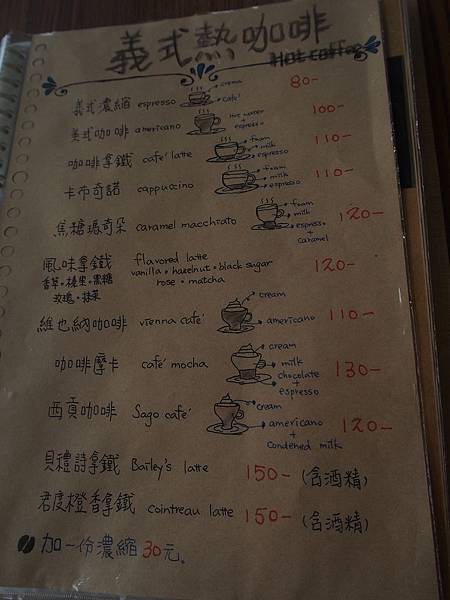 義式熱咖啡
Hot coffee
義式濃縮 espresso crema café 80-
美式咖啡 americano Hot water + espresso 100-
咖啡拿鐵 café latte foam milk espresso 110-
卡布奇諾 cappuccino foam milk espresso 110-
焦糖瑪奇朵 caramel macchiato foam milk espresso + caramel 120-
風味拿鐵 flavored latte 120-
香草・榛果・黑糖 vanilla・hazelnut・black sugar
玫瑰・抹茶 rose・matcha
維也納咖啡 vienna café cream americano 110-
咖啡摩卡 café mocha cream milk chocolate + espresso 130-
西貢咖啡 Sago café cream americano + condened milk 120-
貝禮詩拿鐵 Bailey's latte 150- (含酒精)
君度橙香拿鐵 cointreau latte 150- (含酒精)
加一份濃縮 30元。